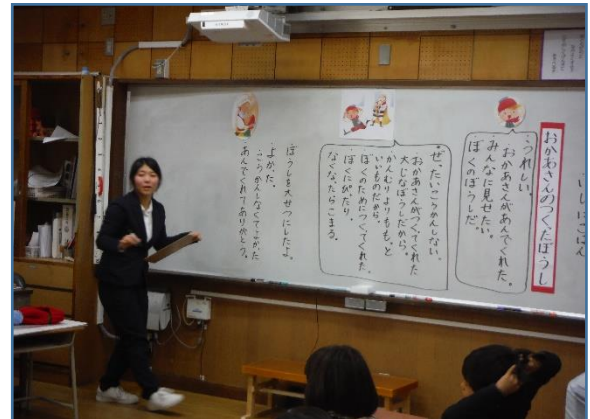 おかあさんのつくったぼうし
・うれしい。
おかあさんがあんでくれた。
・みんなに見せたい。
ぼくのぼうしだ。
・ぜったいこうかんしない。
おかあさんがつくってくれた
大じなぼうしだから。
かんむりよりももっと
いいものだから。
ぼくのためにつくってくれた。
・ぼくにぴったり。
なくなったらこまる。
ぼうしを大せつにしたよ。
よかった。
・こうかんしなくてよかった
・あんでくれてありがとう。